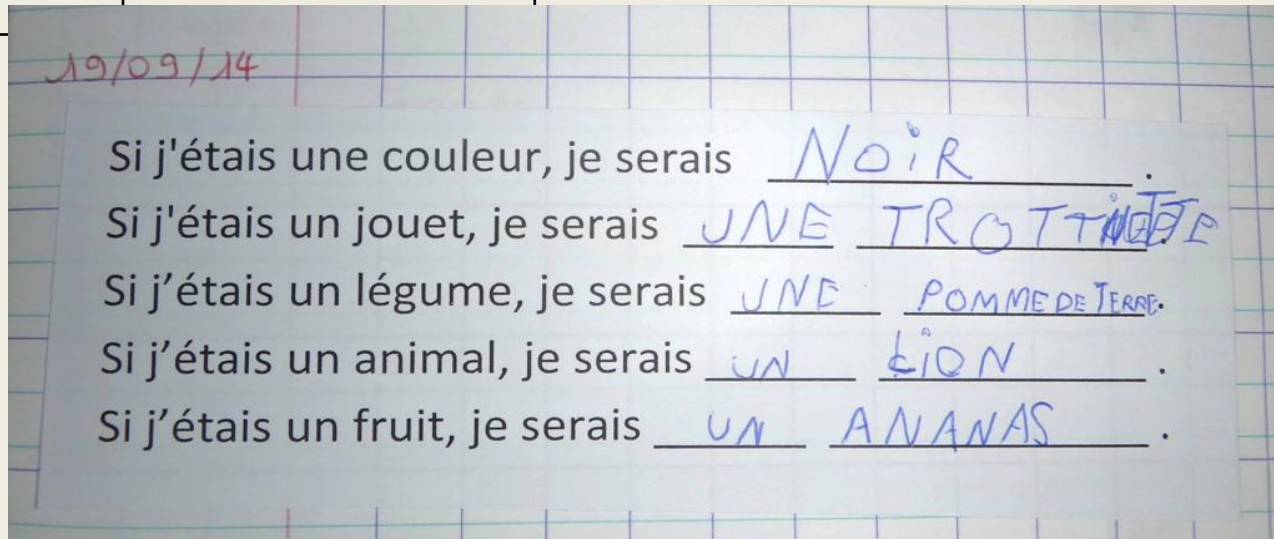 19/09/14
Si j'étais une couleur, je serais NOiR.
Si j'étais un jouet, je serais UNE TROTTiNETTE.
Si j'étais un légume, je serais UNE POMME DE TERRE.
Si j'étais un animal, je serais UN LiON.
Si j'étais un fruit, je serais UN ANANAS.